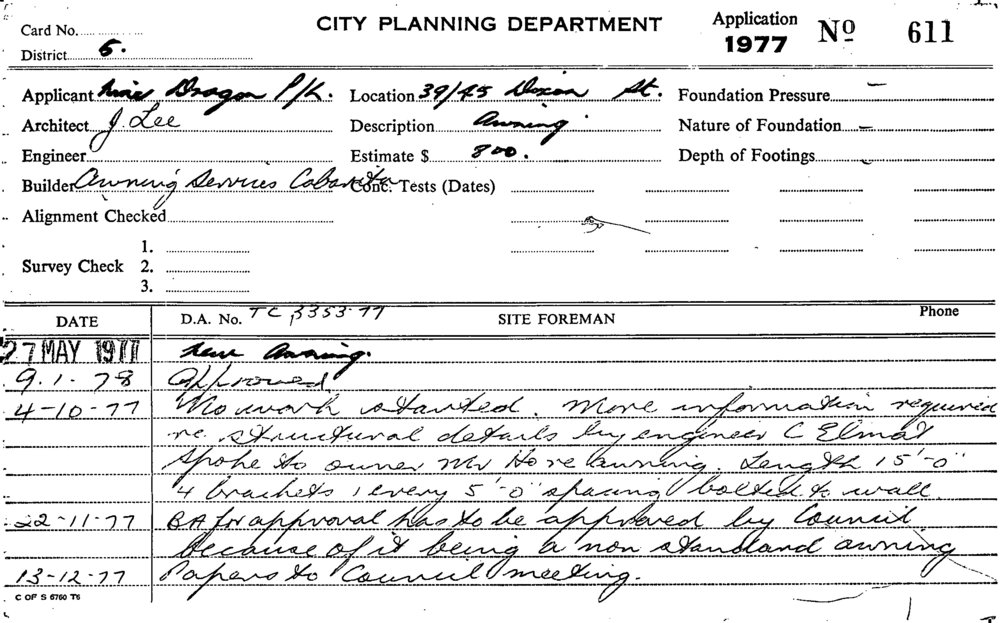 CITY PLANNING DEPARTMENT
Application 1977 No 611
Card No.
District 5.
Applicant Nine Dragon P/L. Location 39/45 Dixon St. Foundation Pressure –
Architect J. Lee Description Awning Nature of Foundation –
Engineer Estimate $ 800. Depth of Footings –
Builder Awning Services Cabarita Conc. Tests (Dates)
Alignment Checked
1.
Survey Check 2.
3.
DATE D.A. No. TC 3353-77 SITE FOREMAN Phone
27 MAY 1977 New Awning.
9.1.78 Approved
4-10-77 No work started. More information required
re. structural details by engineer C Elmat
Spoke to owner Mr Ho re awning. Length 15'-0"
4 brackets 1 every 5'-0" spacing bolted to wall.
22-11-77 BA for approval has to be approved by Council
because of it being a non standard awning
13-12-77 Papers to Council meeting.
C OF S 6760 T6